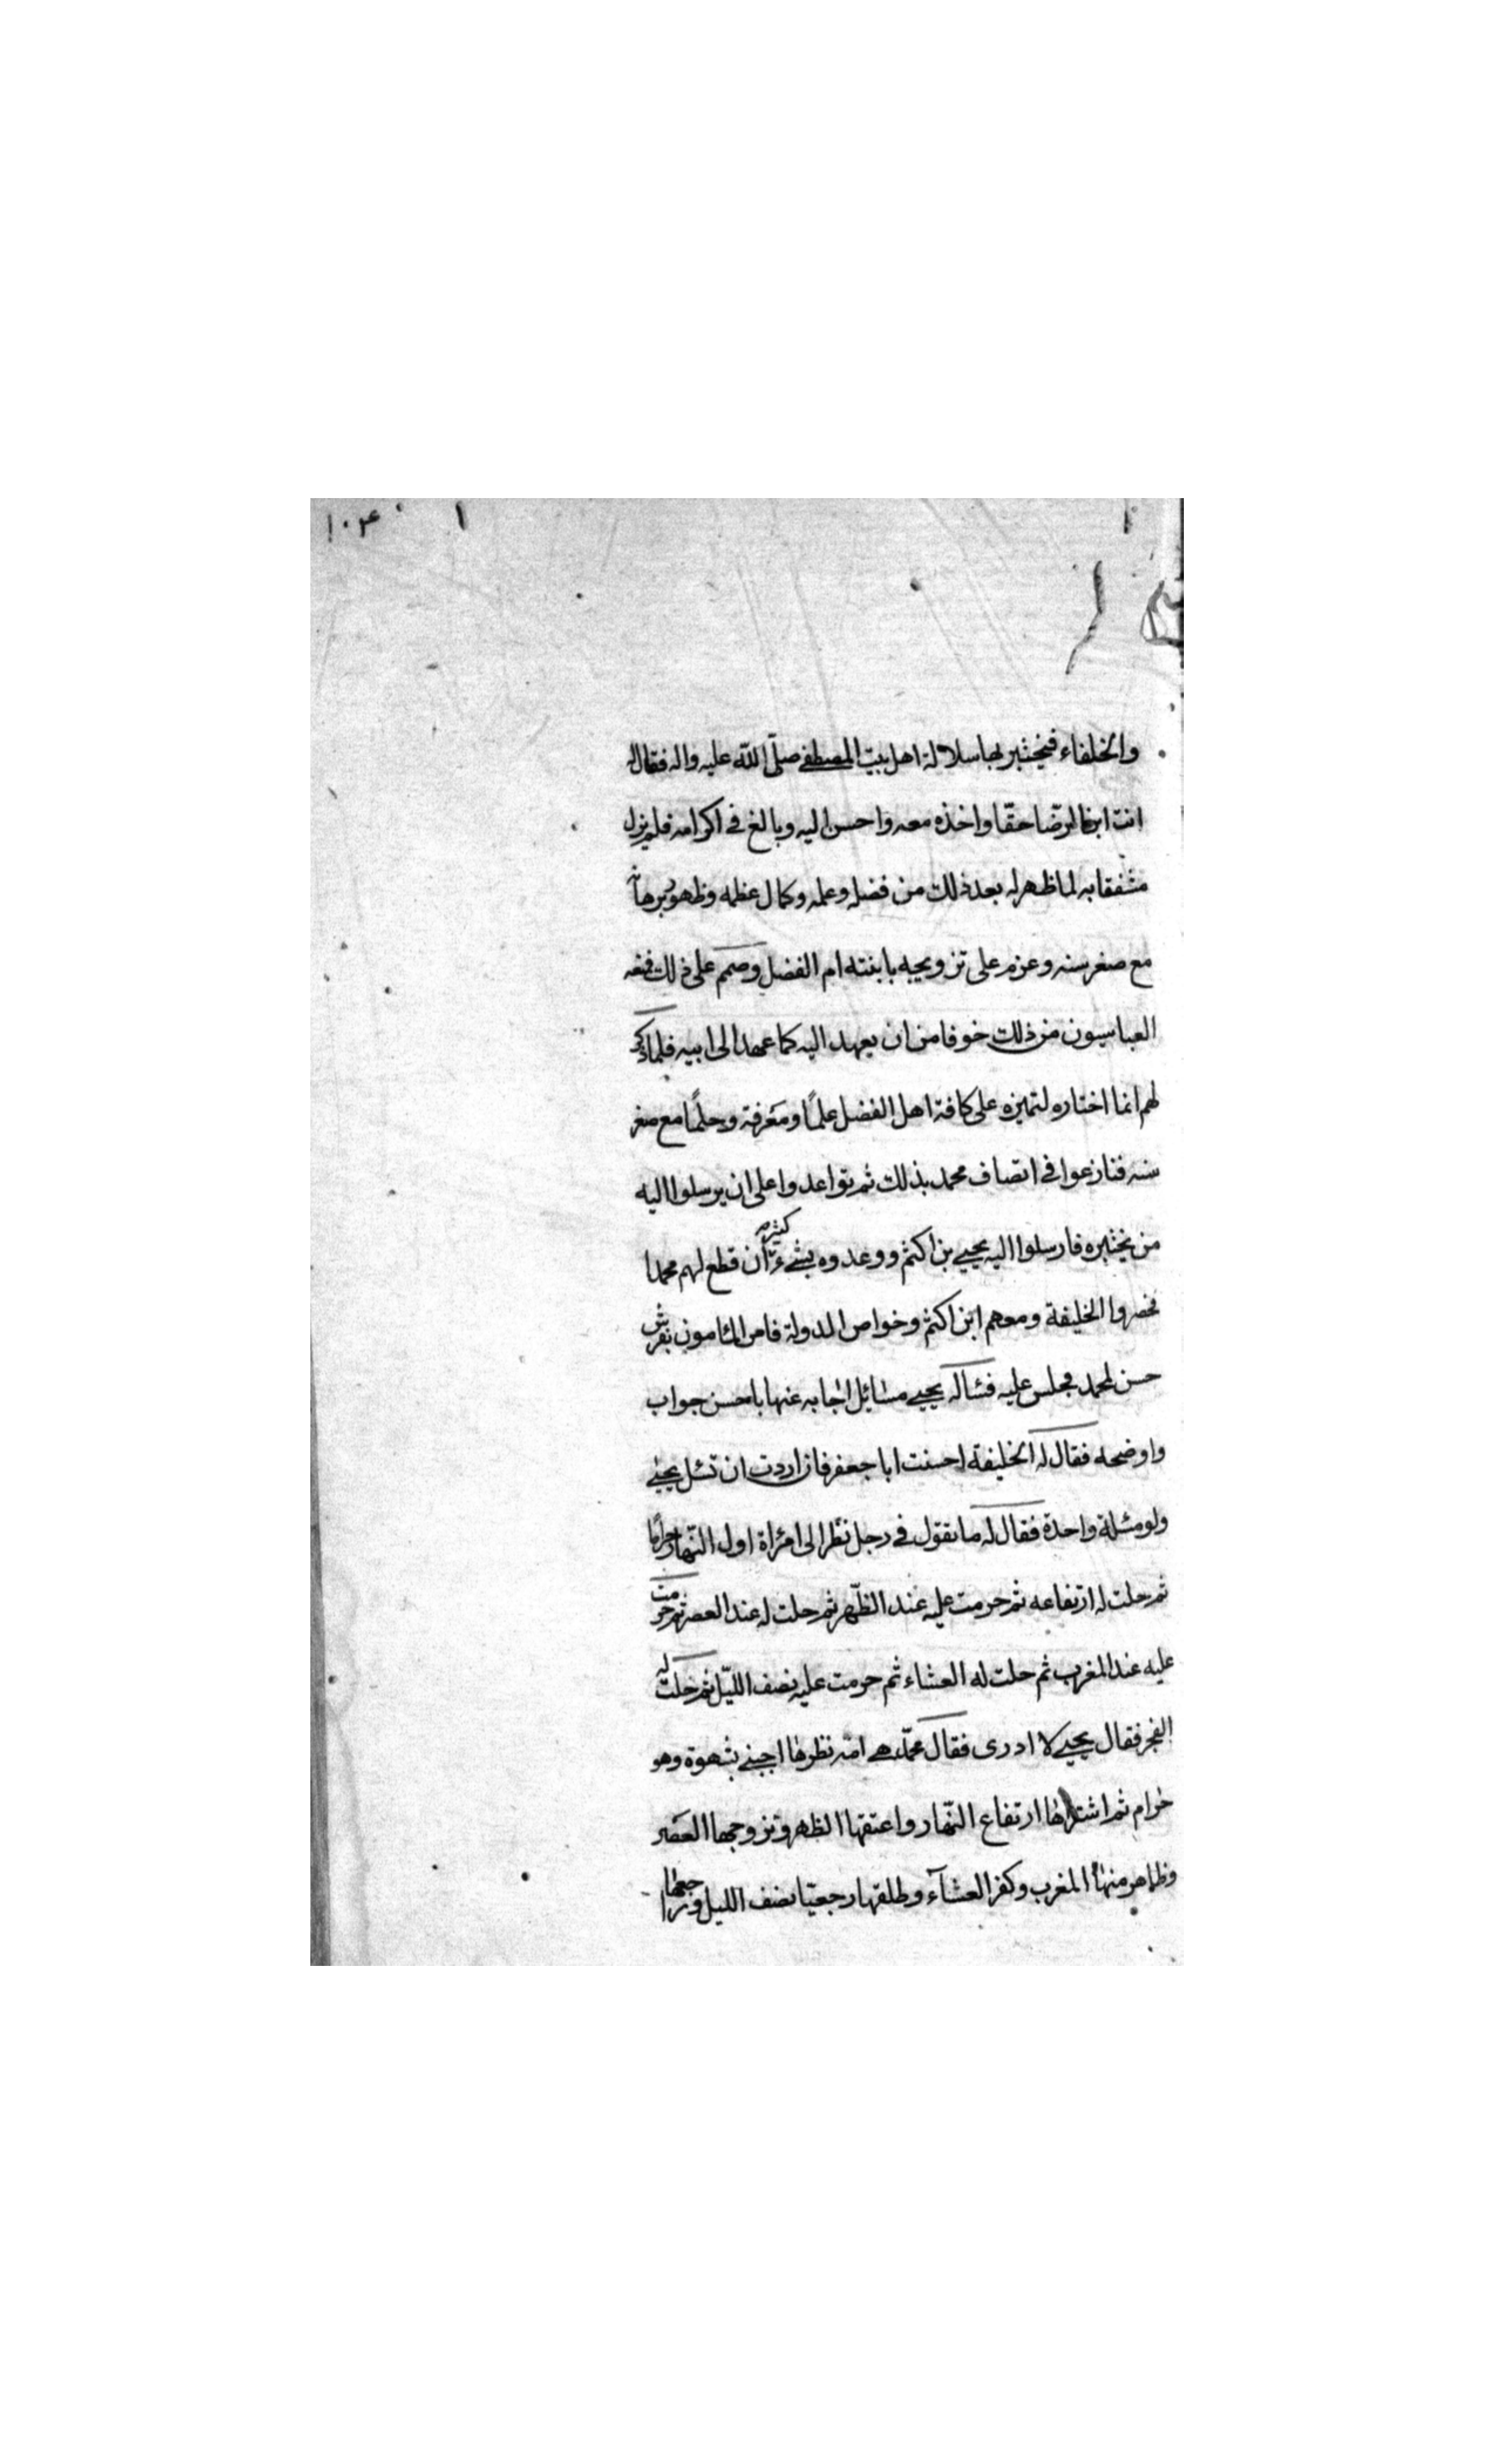 والخلفاء فيختبر بها سلالة اهل بيت المصطفى صلّى اللّه عليه واله فقال له
انت ابن الرضا حقا واخذه معه واحسن اليه وبالغ في اكرامه فلم يزل
مشفقا به لما ظهر له بعد ذلك من فضله وعلمه وكمال عظمه وظهور برهانه
مع صغر سنه وعزم على تزويجه بابنته ام الفضل وصمم على ذلك فمنعه
العباسيون من ذلك خوفا من ان يعهد اليه كما عهد الى ابيه فلما ذكر
لهم انما اختاره لتميزه على كافة اهل الفضل علمًا ومعرفة وحلمًا مع صغر
سنه فنازعوا في اتصاف محمد بذلك ثم تواعدوا على ان يرسلوا اليه
من يختبره فارسلوا اليه يحيى بن اكثم ووعدوه بشيء كثير ان قطع لهم محمدا
فحضروا الخليفة ومعهم ابن اكثم وخواص الدولة فامر المامون بفرش
حسن لمحمد فجلس عليه فسأله يحيى مسائل اجابه عنها باحسن جواب
واوضحه فقال له الخليفة احسنت ابا جعفر فان اردت ان تسئل يحيى
ولو مسئلة واحدة فقال له ما تقول في رجل نظر الى امرأة اول النّهار حرامًا
ثم حلت له ارتفاعه ثم حرمت عليه عند الظّهر ثم حلت له عند العصر ثم حرمت
عليه عند المغرب ثم حلت له العشاء ثم حرمت عليه نصف اللّيل ثم حلت له
الفجر فقال يحيى لا ادرى فقال محمّد هي امة نظرها اجنبي بشهوة وهو
حرام ثم اشتراها ارتفاع النّهار واعتقها الظهر وتزوجها العصر
وظاهر منها المغرب وكفر العشآء وطلقها رجعيّا نصف الليل وراجعها